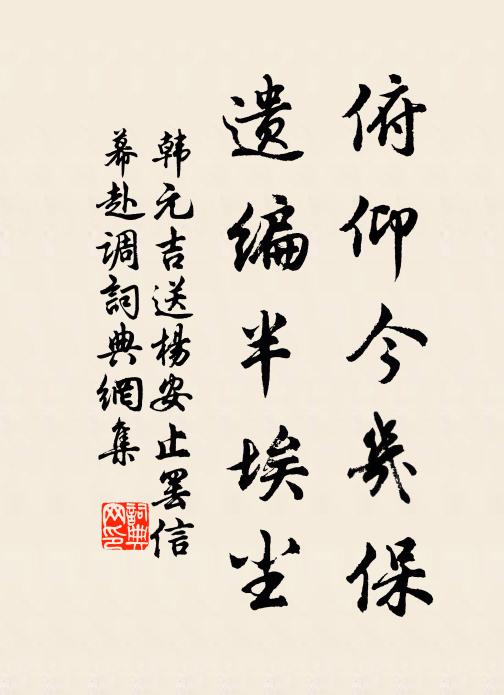 俯仰今几保
遗编半埃尘
韩元吉送杨安止罢信
幕赴调词典網集
詞典網印